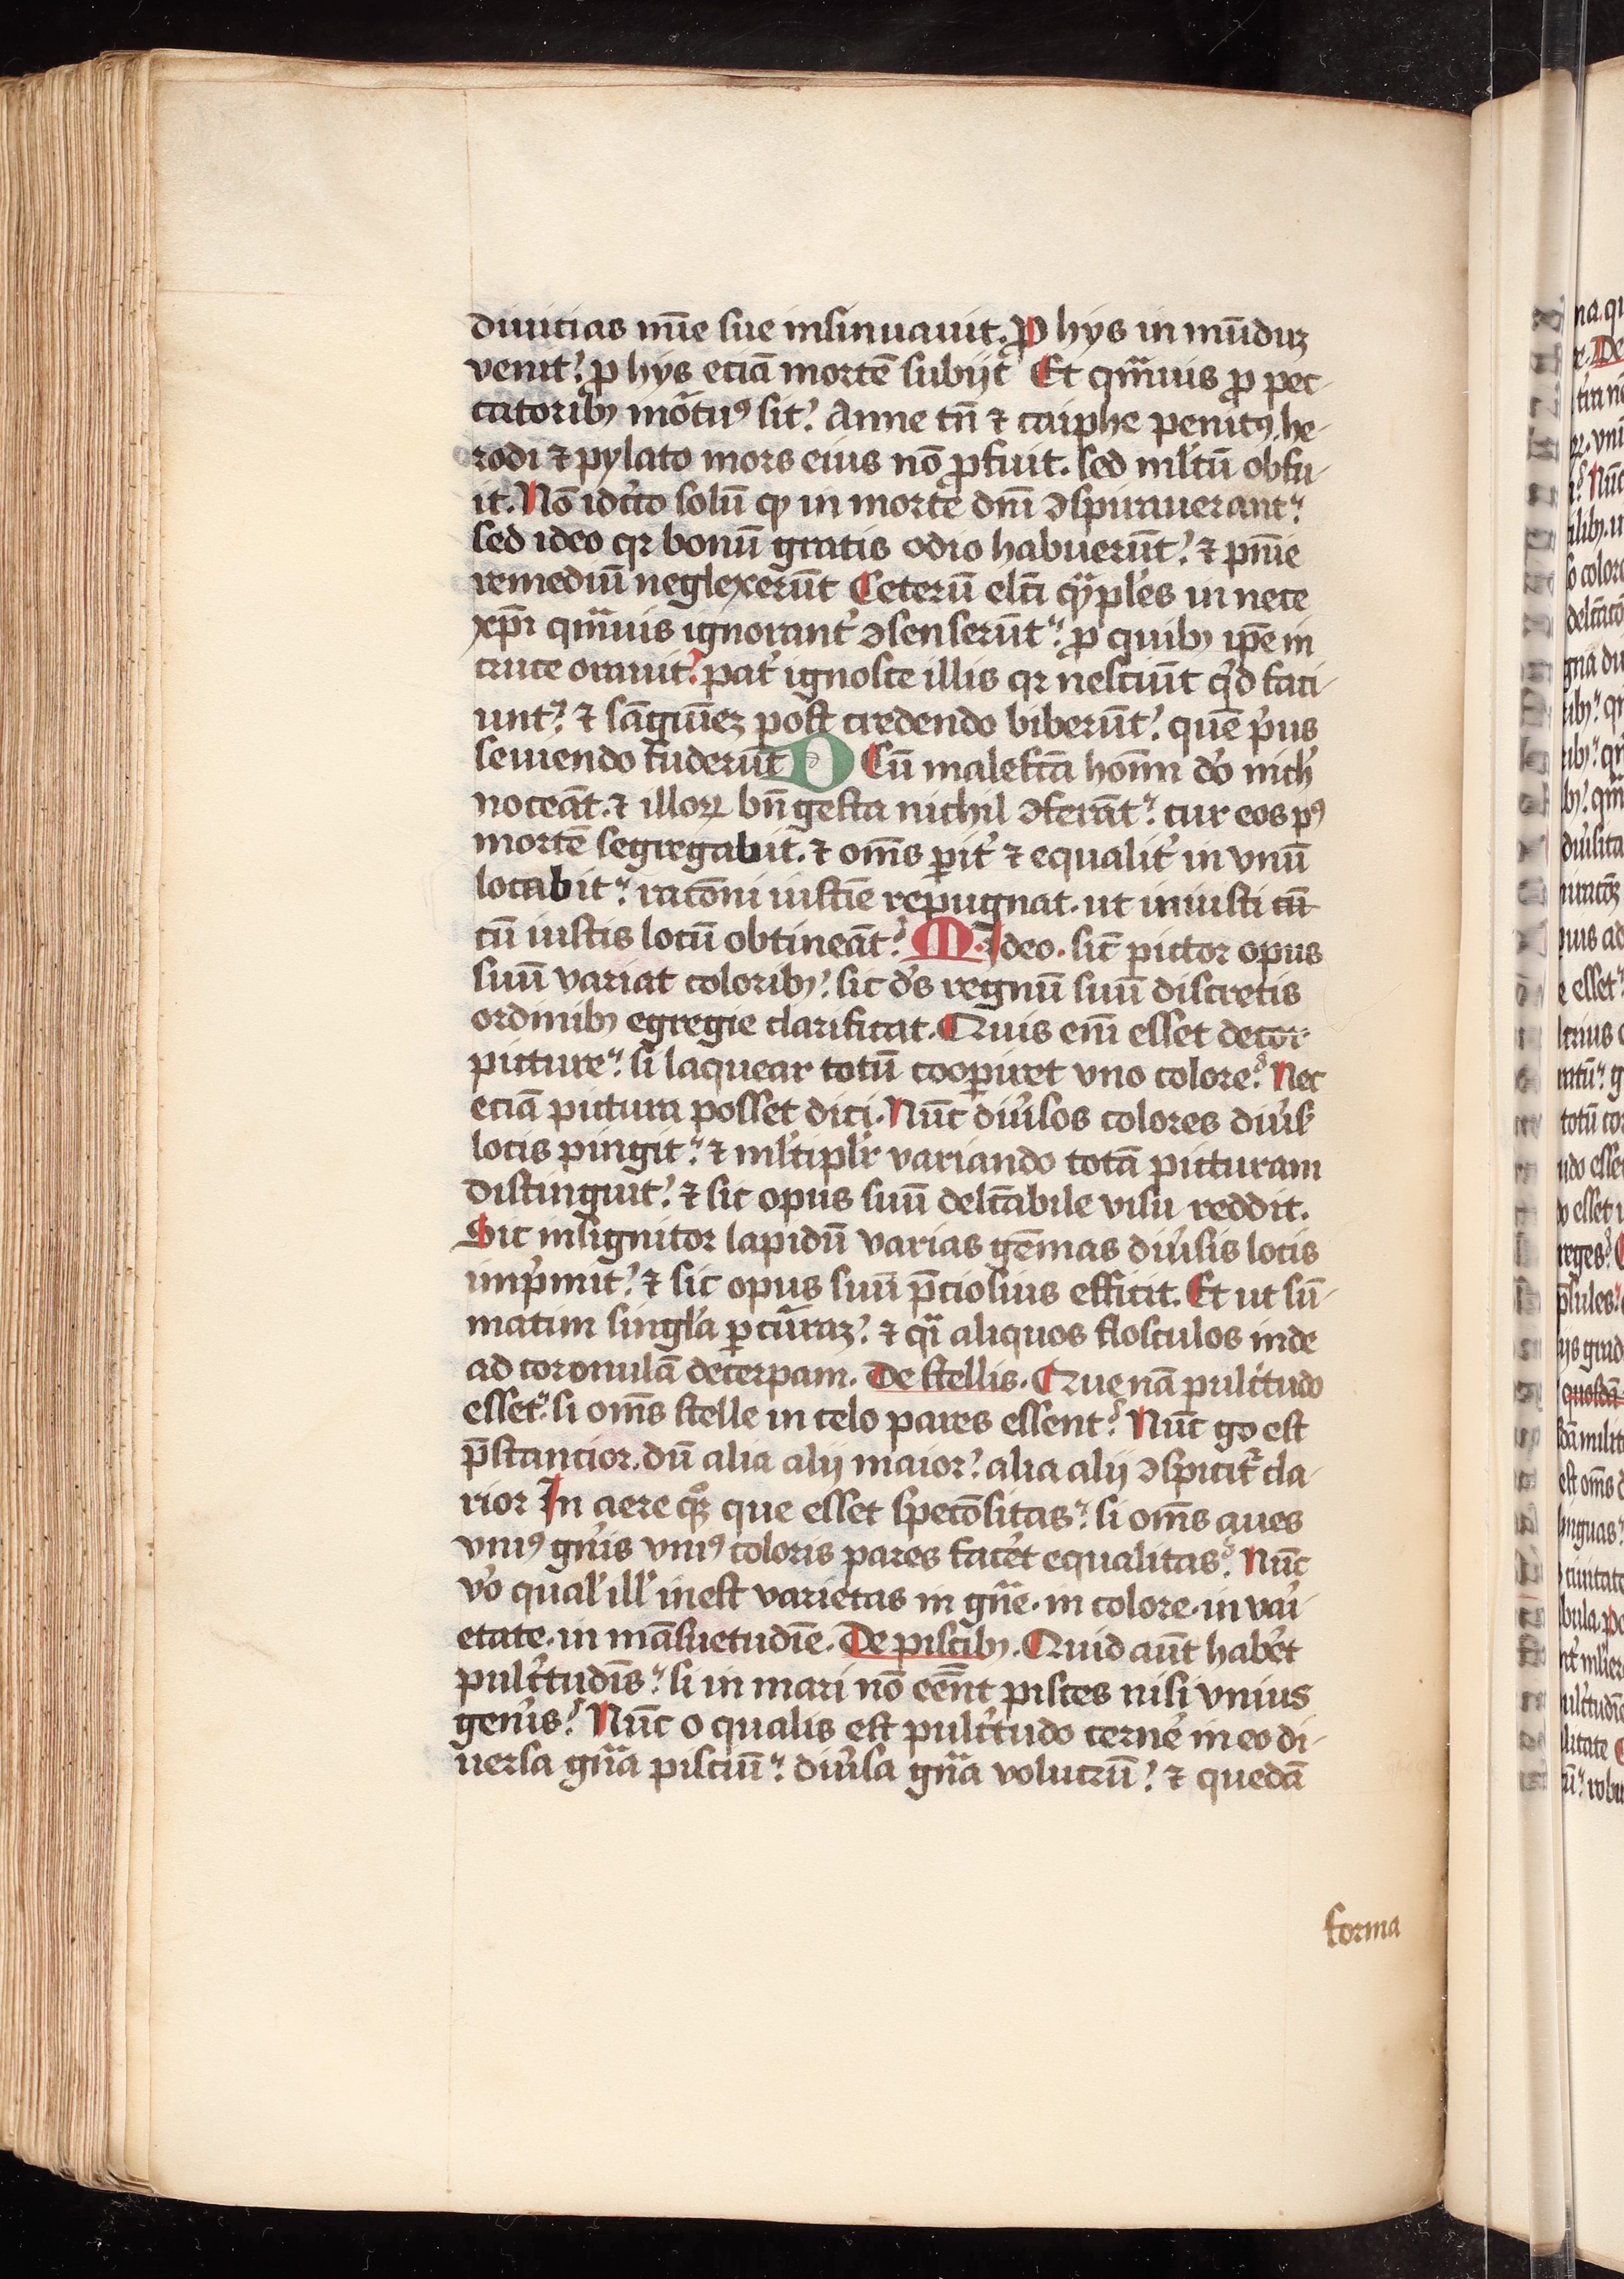 diuicias mīe sue insinuauit. ꝓ hys in mūduȝ
venit? ꝓ hys eciā mortē subijt Et qͣmuis ꝓ pec-
catoribꝫ mortuꝰ sit? Anne tn̄ ⁊ cayphe penitꝰ he-
rodi ⁊ pylato mors eius nō ꝓfuit. sed ml̓tū obfu-
it. Nō idcͥco solū ꝙ in morte dn̄i ꝯspirauerant?
sed ideo qꝛ bonū gratis odio habuerūt? ⁊ pn̄ie
remediū neglexerūt Ceterū elc̄i qͥpl̓es in nece
xp̄i qͣmuis ignorant̓ ꝯsenserūt? ꝓ quibꝫ ip̄e in
cruce orauit? pat̓ ignosce illis qꝛ nesciūt qͥd faci-
unt? ⁊ sāguīeȝ post credendo biberūt? quē pͥus
seuiendo fuderūt D Cū malefc̄a hoīm dō nich̓
noceāt. ⁊ illoꝝ bn̄ gesta nichil ꝯferāt? cur eos pꝰ
mortē segregabit. ⁊ om̄s pit̓ ⁊ equalit̓ in vnū
locabit? racōni iusticie repugnat. ut iniusti cū
cū iustis locū obtineāt? M. Ideo. sic̄ pictor opus
suū variat coloribꝫ? sic ds̓ regnū suū discretis
ordinibꝫ egregie clarificat. Quis em̄ esset decor
picture? si laquear totū cooperiret vno colore? Nec
eciā pictura posset dici. Nūc diu̓sos colores diu̓s̓
locis pingit? ⁊ ml̓tiplr̓ variando totā picturam
distinguit? ⁊ sic opus suū delc̄abile visu reddit.
Sic insignitor lapidū varias gēmas diu̓sis locis
impͥmit? ⁊ sic opus suū p̄ciosius efficit. Et ut sū-
matim singl̓a ꝑcurrāȝ? ⁊ qͣi aliquos flosculos inde
ad coronulā decerpam. De stellis. Que nā pulcͥtudo
esset? si om̄s stelle in celo pares essent? Nūc gͦ est
p̄stancior. dū alia alij maior? alia alij ꝯspicit̓ cla-
rior In aere qͦꝫ que esset speciōsitas? si om̄s aues
vniꝰ gn̓is vniꝰ coloris pares facēt equalitas? Nūc
vͦo qual̓ ill̓ inest varietas in gn̄e. in colore. in vaͥ
etate. in māsuetudīe. De piscibꝫ. Quid aūt habēt
pulcͥtudīs? si in mari nō eēnt pisces nisi vnius
gen̓is? Nūc o qualis est pulcͥtudo cerne̓ in eo di-
uersa gn̄a pisciū? diu̓sa gn̄a volucrū? ⁊ quedā
forma